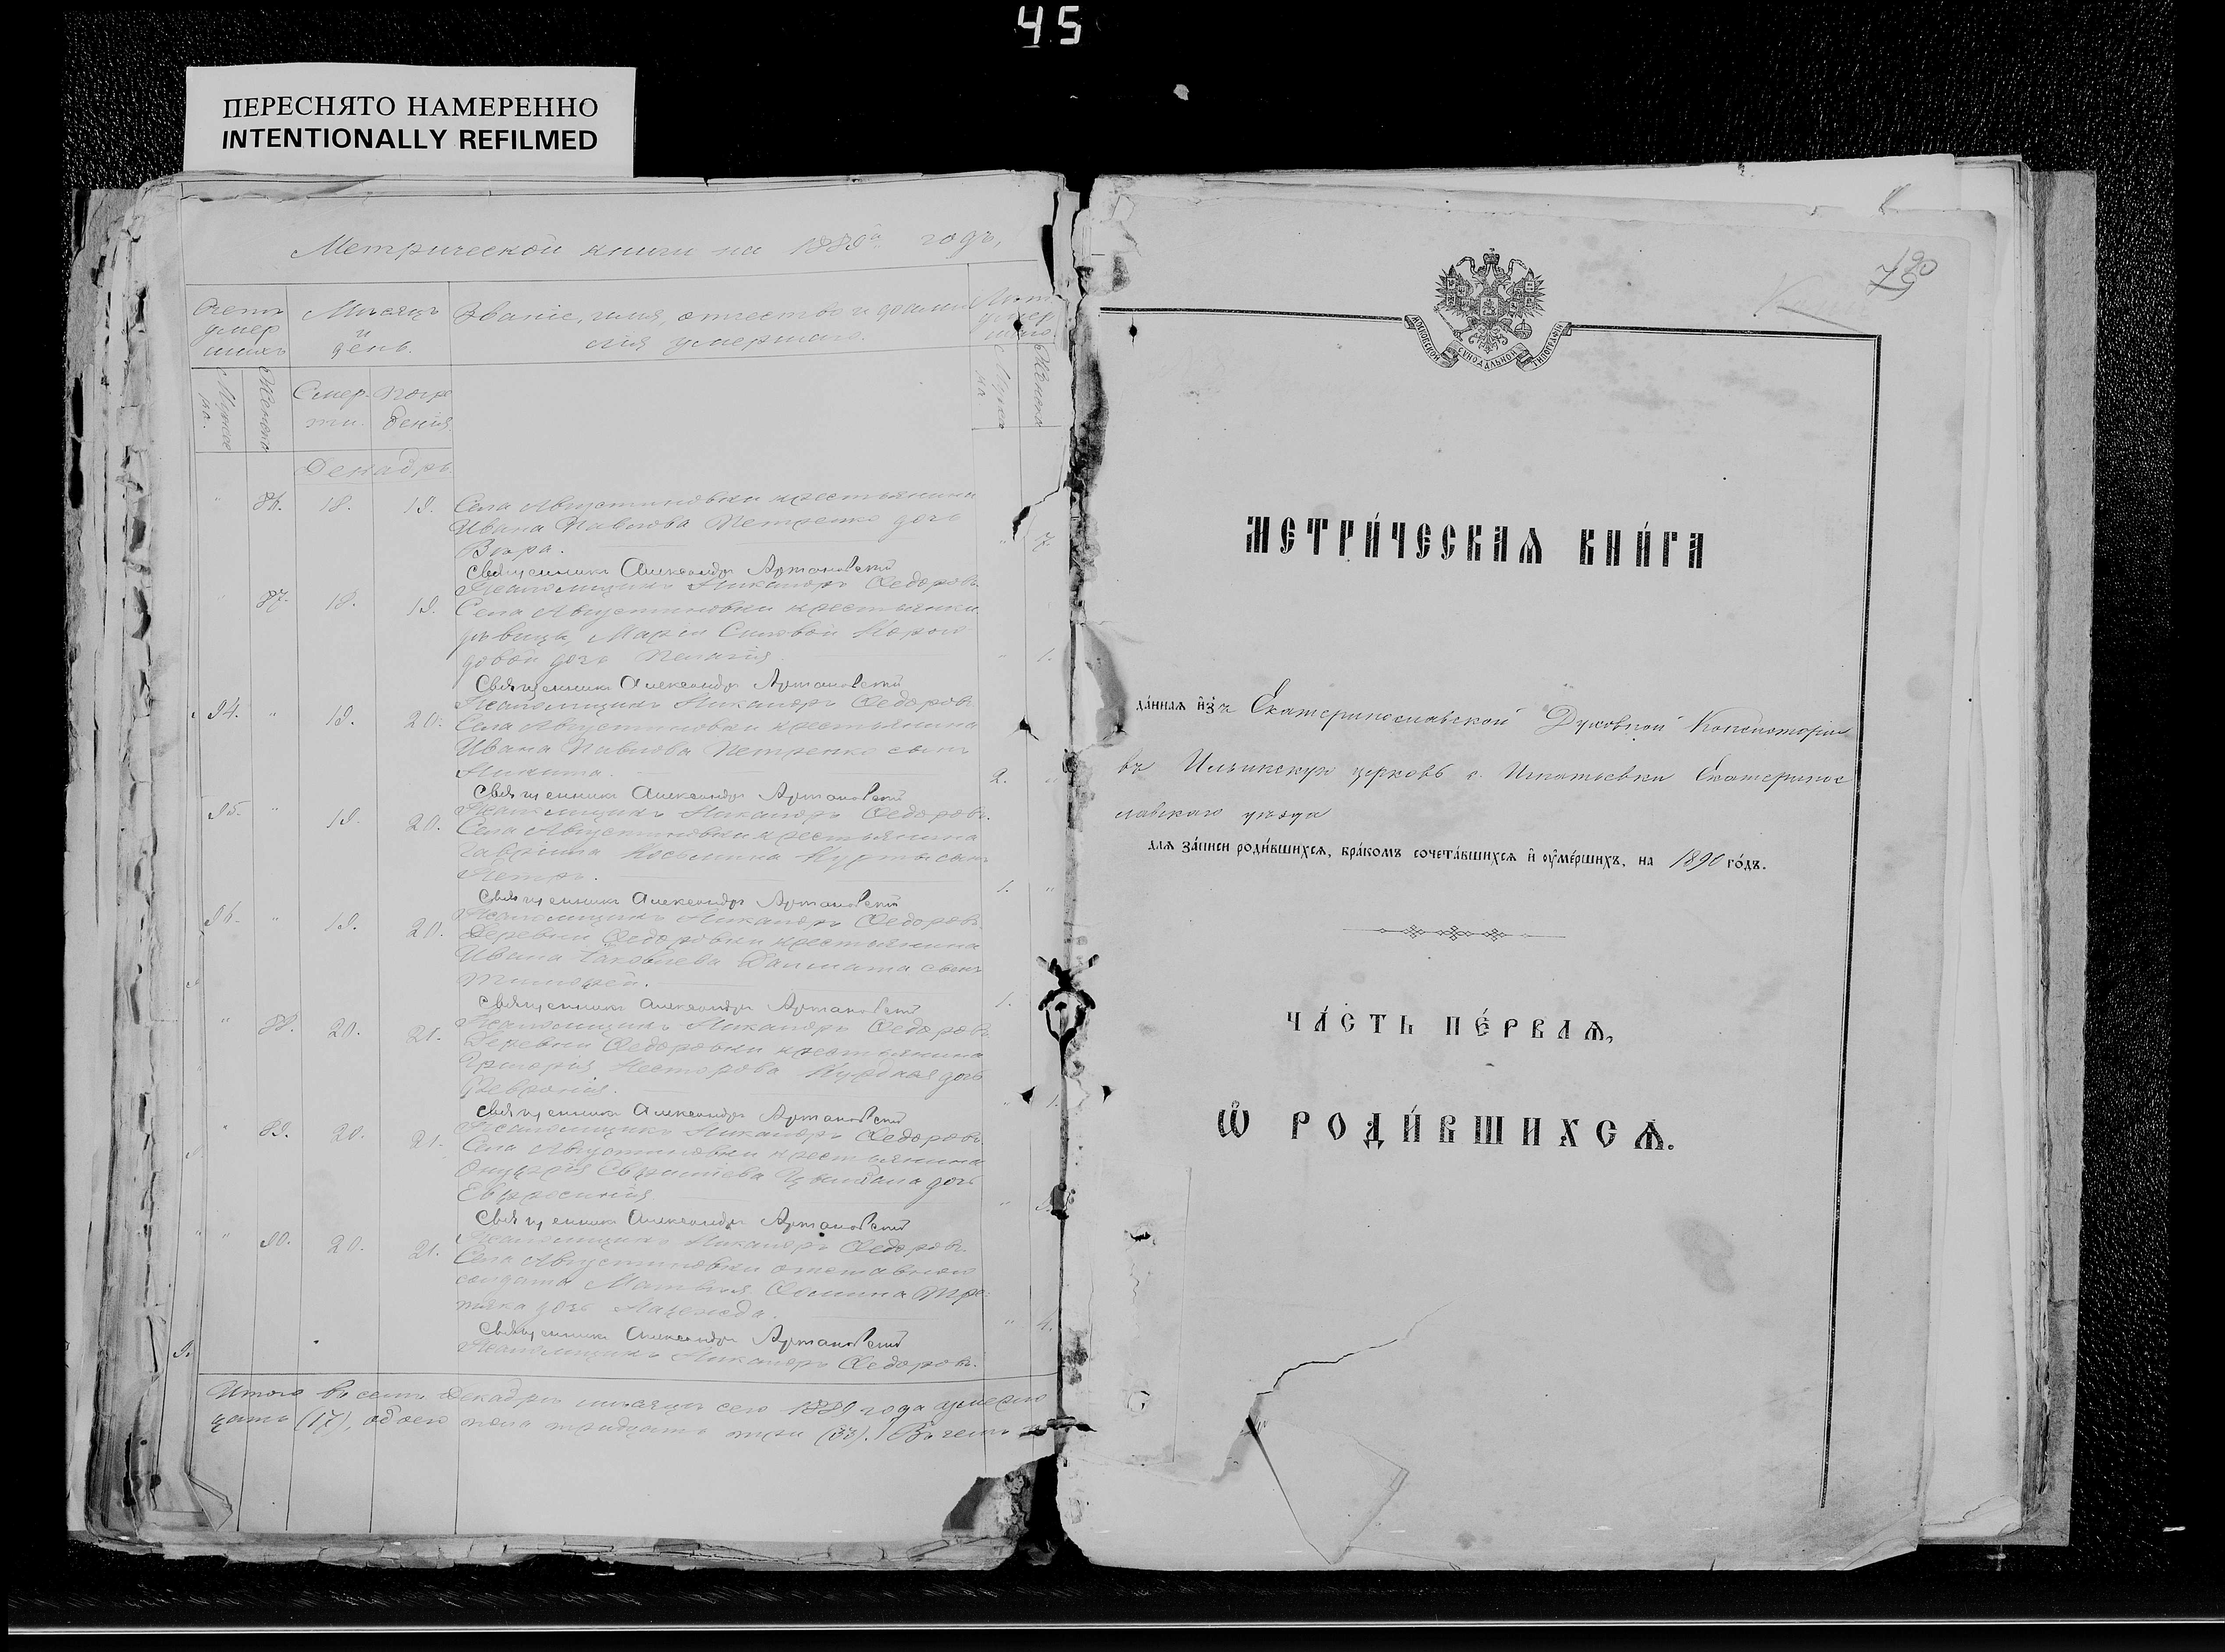 45
ПЕРЕСНЯТО НАМЕРЕННО
INTENTIONALLY REFILMED
Метрической книги на 1889й годъ,
Счетъ умер шихъ
Мѣсяцъ и день.
Званіе, имя, отчество и фами
лія умершаго.
Мужес
ка.
Женска
Смер-
ти.
Погре
бенія
Декабрь.
86. 18. 19. Села Августиновки крестьянина
Ивана Павлова Петренко дочь
Вѣра. 7.
Священникъ Александръ Артановскій
Псаломщикъ Никаноръ Ѳедоровъ.
87. 18. 19. Села Августиновки крестьянки
дѣвицы Маріи
довой дочь Пелагія. 1.
Священникъ Александръ Артановскій
Псаломщикъ Никаноръ Ѳедоровъ.
94. " 19. 20. Села Августиновки крестьянина
Ивана Павлова Петренко сынъ
Никита. 2.
Священникъ Александръ Артановскій
Псаломщикъ Никаноръ Ѳедоровъ.
95. " 19. 20. Села Августиновки крестьянина
Гавріила Косьмина сынъ
Петръ. 1. "
Священникъ Александръ Артановскій
Псаломщикъ Никаноръ Ѳедоровъ.
96. " 19. 20. Деревни Ѳедоровки крестьянина
Ивана Яковлева сынъ
Тимоѳей. 1.
Священникъ Александръ Артановскій
Псаломщикъ Никаноръ Ѳедоровъ
" 88. 20. 21. Деревни Ѳедоровки крестьянина
Григорія Несторова дочь
Февронія. " 1.
Священникъ Александръ Артановскій
Псаломщикъ Никаноръ Ѳедоровъ.
" 89. 20. 21. Села Августиновки крестьянина
дочь
Евфросинія "
Священникъ Александръ Артановскій
Псаломщикъ Никаноръ Ѳедоровъ.
" 90. 20. 21. Села Августиновки отставного
солдата Матвѣя Ѳомина Тре-
тяка дочь Надежда. " 4.
Священникъ Александръ Артановскій
Псаломщикъ Никаноръ Ѳедоровъ.
Итого въ семъ Декабрѣ мѣсяцѣ сего 1889 года умерло
цать (17), обоего пола тридцать три (33). Вѣчемъ
190
79
МОСКОВСКОЙ СѴНОДАЛЬНОЙ ТИПОГРАФІИ
МЕТРИ́ЧЕСКАѦ КНИ́ГА
да́ннаѧ и҆зъ Екатеринославской Духовной Консисторіи
въ Ильинскую церковь с. Игнатьевки Екатеринос
лавскаго уѣзда
для за́писи роди́вшихсѧ, бра́комъ сочета́вшихсѧ и҆ оу҆ме́ршихъ, на 1890 го́дъ.
ЧА́СТЬ ПЕ́РВАѦ,
Ѽ РОДИ́ВШИХСѦ.